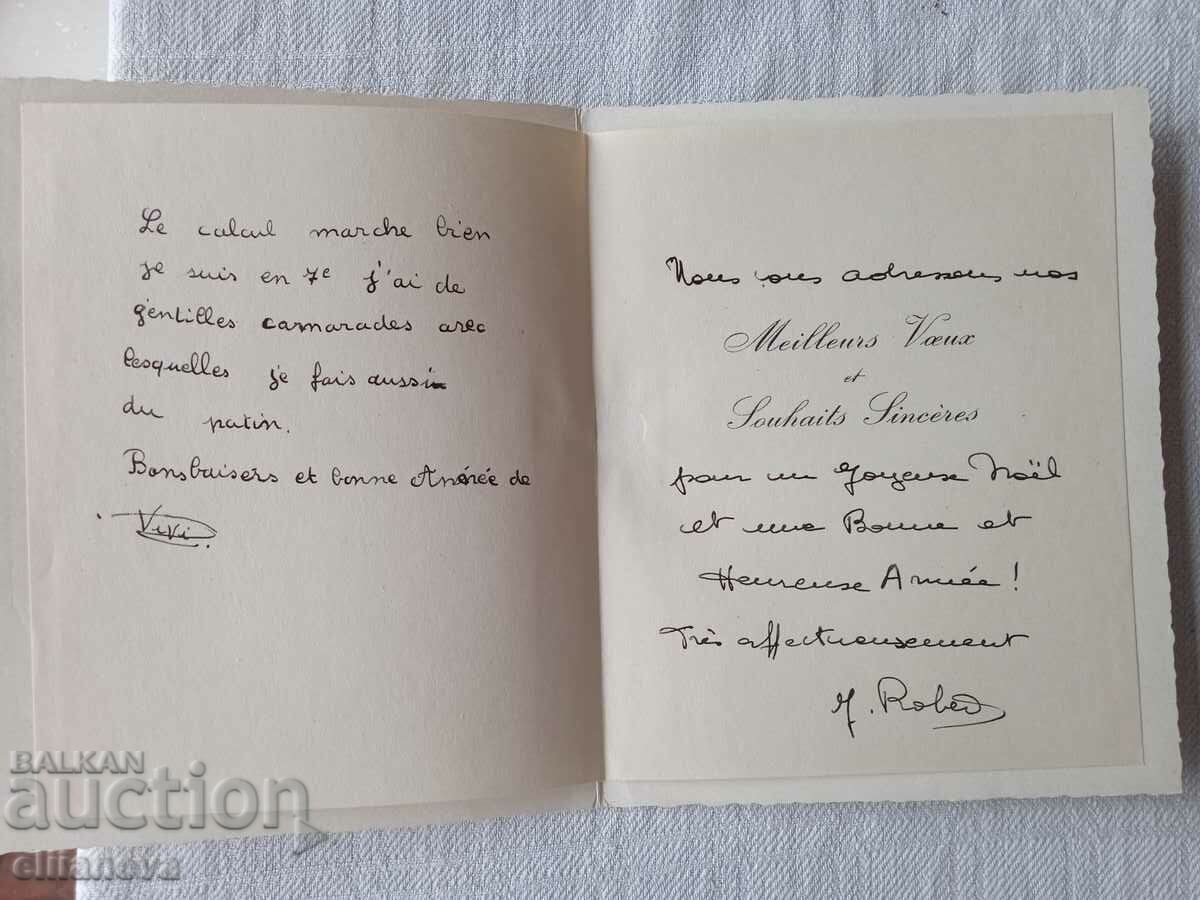 Le calcul marche bien
je suis en 7e j'ai de
gentilles camarades avec
lesquelles je fais aussi
du patin.
Bons baisers et bonne Année de
ViVi.
Nous vous adressons nos
Meilleurs Vœux
et
Souhaits Sincères
pour un Joyeuse Noël
et une Bonne et
Heureuse Année !
Très affectueusement
Robert
BALKAN
auction
elifaneva